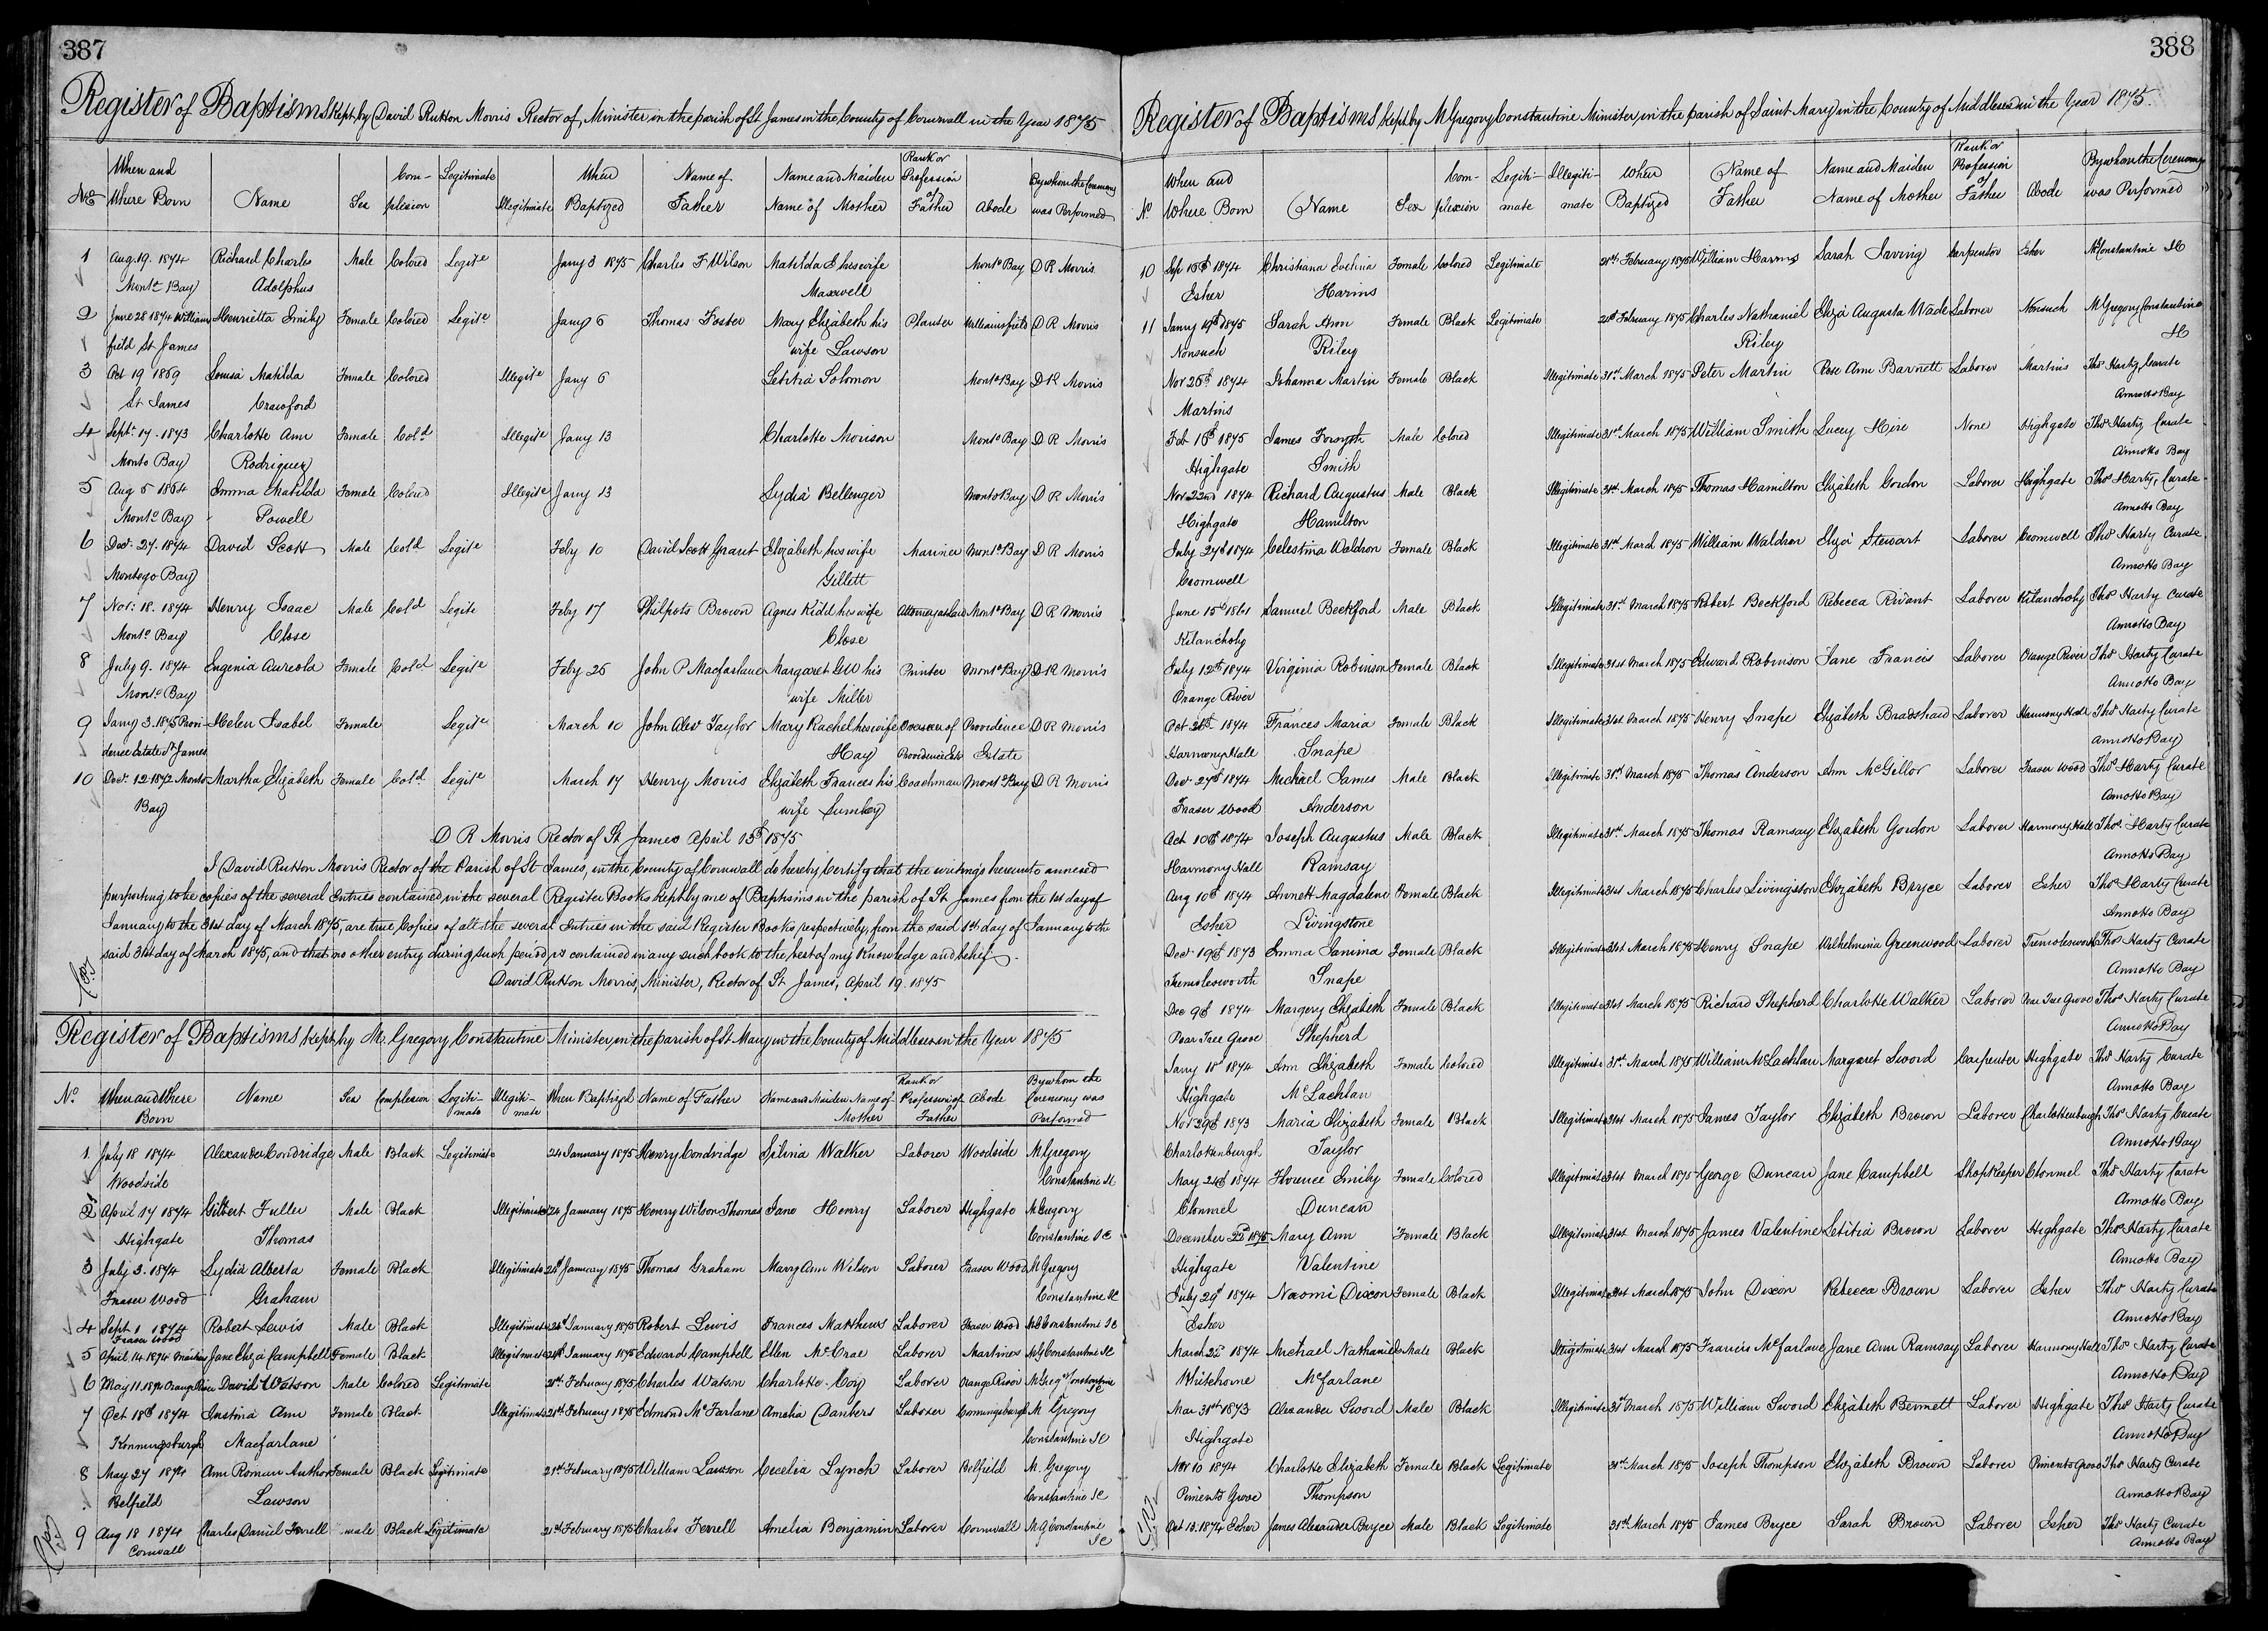 387
Register of Baptisms kept by David Rutton Morris Rector of, Minister in the parish of St James in the County of Cornwall in the Year 1875
No When and Where Born Name Sex Complexion Legitimate Illegitimate When Baptized Name of Father Name and Maiden Name of Mother Rank or Profession of Father Abode By whom the Ceremony was Performed
1 Aug. 19. 1874 Richard Charles Male Colored Legite Jany 3 1875 Charles F Wilson Matilda E his wife Monto Bay D R Morris
Monto Bay Adolphus Maxwell
2 June 28 1874 William Henrietta Emily Female Colored Legite Jany 6 Thomas Foster Mary Elizabeth his Planter Williamsfield D R Morris
field St James wife Lawson
3 Oct 19 1869 Louisa Matilda Female Colored Illegite Jany 6 Letitia Solomon Monto Bay D R Morris
St James Crawford
4 Sept. 17. 1873 Charlotte Ann Female Cold Illegite Jany 13 Charlotte Morison Monto Bay D R Morris
Monto Bay Rodriguez
5 Aug 5 1864 Emma Matilda Female Colored Illegite Jany 13 Lydia Bellenger Monto Bay D R Morris
Monto Bay Powell
6 Decr. 27. 1874 David Scott Male Cold Legite Feby 10 David Scott Grant Elizabeth his wife Mariner Monto Bay D R Morris
Montego Bay Gillett
7 Nov: 18. 1874 Henry Isaac Male Cold Legite Feby 17 Philpots Brown Agnes Kidd his wife Attorney at Law Monto Bay D R Morris
Monto Bay Close Close
8 July 9. 1874 Eugenia Aureola Female Cold Legite Feby 25 John P Macfarlane Margaret GW his Printer Monto Bay D R Morris
Monto Bay wife Miller
9 Jany 3. 1875 Provi- Helen Isabel Female Legite March 10 John Alexr Taylor Mary Rachel his wife Overseer of Providence D R Morris
dence Estate St James Hay Providence Este Estate
10 Decr. 12 1872 Monto Martha Elizabeth Female Cold Legite March 17 Henry Morris Elizabeth Frances his Coachman Monto Bay D R Morris
Bay wife Sumley
D R Morris Rector of St James April 15th 1875
I David Rutton Morris Rector of the Parish of St James, in the County of Cornwall do hereby Certify that the writings hereunto annexed
purporting to be copies of the several Entries contained in the several Register Books kept by me of Baptisms in the parish of St James from the 1st day of
January to the 31st day of March 1875, are true Copies of all the several Entries in the said Register Books respectively, from the said 1st day of January to the
said 31st day of March 1875, and that no other entry during such period is contained in any such book to the best of my knowledge and belief.
David Rutton Morris, Minister, Rector of St James, April 19. 1875
Register of Baptisms kept by M. Gregory Constantine Minister, in the parish of St Mary in the County of Middlesex in the Year 1875
No. When and Where Born Name Sex Complexion Legitimate Illegitimate When Baptized Name of Father Name and Maiden Name of Mother Rank or Profession of Father Abode By whom the Ceremony was Performed
1 July 18 1874 Alexander Condridge Male Black Legitimate 24 January 1875 Henry Condridge Silvina Walker Laborer Woodside M Gregory
Woodside Constantine
2 April 17 1874 Gilbert Fuller Male Black Illegitimate 24 January 1875 Henry Wilson Thomas Jane Henry Laborer Highgate M Gregory
Highgate Thomas Constantine
3 July 3. 1874 Lydia Alberta Female Black Illegitimate January 1875 Thomas Graham Mary Ann Wilson Laborer Fraser Wood M Gregory
Fraser Wood Graham Constantine
4 Sept 1 1874 Robert Lewis Male Black Illegitimate January 1875 Robert Lewis Frances Matthews Laborer Fraser Wood MG Constantine
Fraser Wood
5 April 14 1874 Martins Jane Eliza Campbell Female Black Illegitimate January 1875 Edward Campbell Ellen McCrae Laborer Martines MG Constantine
6 May 11. 1874 Orange River David Watson Male Colored Legitimate 21st February 1875 Charles Watson Charlotte Coy Laborer Orange River M Gregy Constantine
7 Oct 18th 1874 Justina Ann Female Black Illegitimate 21st February 1875 Edmond McFarlane Amelia Dankers Laborer Conningsburgh M Gregory
Konningsburgh Macfarlane Constantine
8 May 27 1874 Ann Roman Author Female Black Legitimate 21st February 1875 William Lawson Cecelia Lynch Laborer Belfield M. Gregory
Belfield Lawson Constantine
9 Aug 18 1874 Charles Daniel Ferrell male Black Legitimate 21st February 1875 Charles Ferrell Amelia Benjamin Laborer Cornwall M G Constantine
Cornwall
388
Register of Baptisms kept by M Gregory Constantine Minister, in the parish of Saint Mary in the County of Middlesex in the Year 1875.
No When and Where Born Name Sex Complexion Legitimate Illegitimate When Baptized Name of Father Name and Maiden Name of Mother Rank or Profession of Father Abode By whom the Ceremony was Performed
10 Sep 16th 1874 Christiana Female Colored Legitimate 21st February 1875 William Harms Sarah Saving Carpenter Esher M Constantine
Esher Harms
11 Jany 19th 1875 Sarah Ann Female Black Legitimate February 1875 Charles Nathaniel Eliza Augusta Wade Laborer Nonsuch M Gregory Constantine
Nonsuch Riley Riley
Nov 26th 1874 Johanna Martin Female Black Illegitimate 31st March 1875 Peter Martin Rose Ann Barnett Laborer Martins Thos Harty Curate
Martins Annotto Bay
Feb 16th 1875 James Forsyth Male Colored Illegitimate 31st March 1875 William Smith Lucey Hire None Highgate Thos Harty Curate
Highgate Smith Annotto Bay
Nov 22nd 1874 Richard Augustus Male Black Illegitimate 31st March 1875 Thomas Hamilton Elizabeth Gordon Laborer Highgate Thos Harty, Curate
Highgate Hamilton Annotto Bay
July 27th 1874 Celestina Waldron Female Black Illegitimate 31st March 1875 William Waldron Eliza Stewart Laborer Cromwell Thos Harty Curate
Cromwell Annotto Bay
June 15th 1861 Samuel Beckford Male Black Illegitimate 31st March 1875 Robert Beckford Rebecca Rivant Laborer Kilancholy Thos Harty Curate
Kilancholy Annotto Bay
July 12th 1874 Virginia Robinson Female Black Illegitimate 31st March 1875 Edward Robinson Jane Francis Laborer Orange River Thos Harty Curate
Orange River Annotto Bay
Oct 21st 1874 Frances Maria Female Black Illegitimate 31st March 1875 Henry Snape Elizabeth Bradshaw Laborer Harmony Hall Thos Harty Curate
Harmony Hall Snape Annotto Bay
Decr 27th 1874 Michael James Male Black Illegitimate 31st March 1875 Thomas Anderson Ann McGillor Laborer Fraser Wood Thos Harty Curate
Fraser Wood Anderson Annotto Bay
Oct 10th 1874 Joseph Augustus Male Black Illegitimate 31st March 1875 Thomas Ramsay Elizabeth Gordon Laborer Harmony Hall Thos Harty Curate
Harmony Hall Ramsay Annotto Bay
Aug 10th 1874 Annett Magdalene Female Black Illegitimate 31st March 1875 Charles Livingston Elizabeth Bryce Laborer Esher Thos Harty Curate
Esher Livingstone Annotto Bay
Decr 19th 1873 Emma Janima Female Black Illegitimate 31st March 1875 Henry Snape Wilhelmina Greenwood Laborer Tremolesworth Thos Harty Curate
Tremolesworth Snape Annotto Bay
Dec 9th 1874 Margery Elizabeth Female Black Illegitimate 31st March 1875 Richard Shepherd Charlotte Walker Laborer Pear Tree Grove Thos Harty Curate
Pear Tree Grove Shepherd Annotto Bay
Jany 18 1874 Ann Elizabeth Female Colored Illegitimate 31st March 1875 William McLachlan Margaret Sword Carpenter Highgate Thos Harty Curate
Highgate McLachlan Annotto Bay
Nov 29th 1873 Maria Elizabeth Female Black Illegitimate 31st March 1875 James Taylor Elizabeth Brown Laborer Charlottenburgh Thos Harty Curate
Charlottenburgh Taylor Annotto Bay
May 24th 1874 Florence Emily Female Colored Illegitimate 31st March 1875 George Duncan Jane Campbell Shopkeeper Clonmel Thos Harty Curate
Clonmel Duncan Annotto Bay
December 25 1875 Mary Ann Female Black Illegitimate 31st March 1875 James Valentine Letitia Brown Laborer Highgate Thos Harty Curate
Highgate Valentine Annotto Bay
July 29th 1874 Naomi Dixon Female Black Illegitimate 31st March 1875 John Dixon Rebecca Brown Laborer Esher Thos Harty Curate
Esher Annotto Bay
March 1874 Michael Nathaniel Male Black Illegitimate 31st March 1875 Francis McFarlane Jane Ann Ramsay Laborer Harmony Hall Thos Harty Curate
Whitehorne McFarlane Annotto Bay
Mar 31st 1873 Alexander Sword Male Black Illegitimate 31st March 1875 William Sword Elizabeth Bennett Laborer Highgate Thos Harty Curate
Highgate Annotto Bay
Nov 10 1874 Charlotte Elizabeth Female Black Legitimate 31st March 1875 Joseph Thompson Elizabeth Brown Laborer Pimento Grove Thos Harty Curate
Pimento Grove Thompson Annotto Bay
Oct 13. 1874 Esher James Alexander Bryce Male Black Legitimate 31st March 1875 James Bryce Sarah Brown Laborer Esher Thos Harty Curate
Annotto Bay